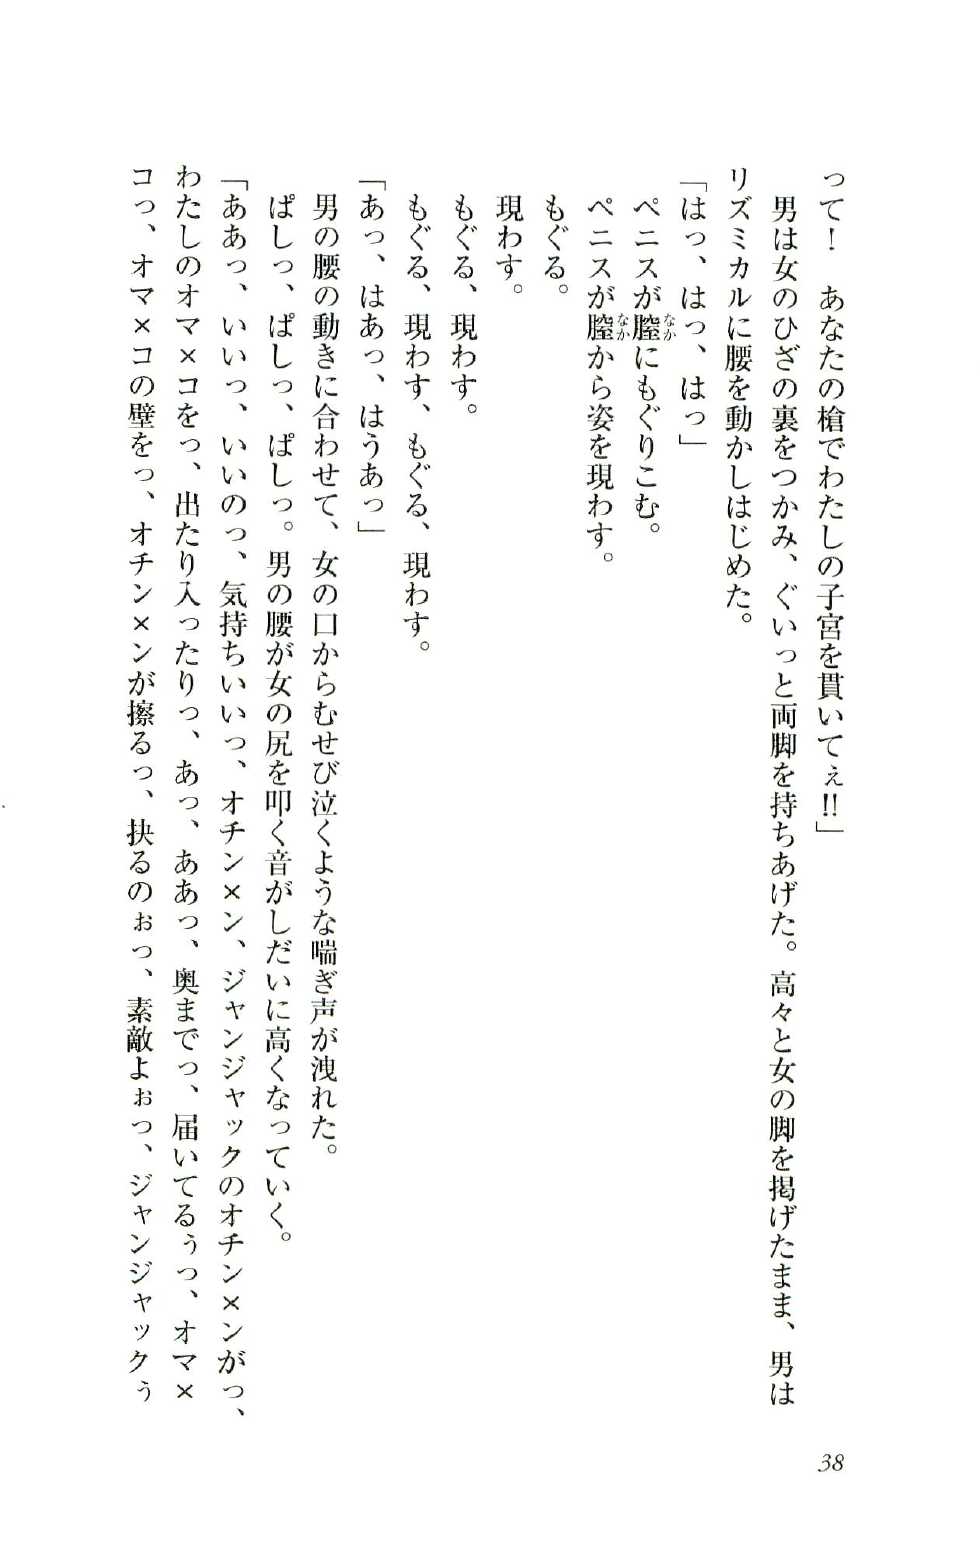 って！　あなたの槍でわたしの子宮を貫いてぇ!!」
　男は女のひざの裏をつかみ、ぐいっと両脚を持ちあげた。高々と女の脚を掲げたまま、男は
リズミカルに腰を動かしはじめた。
「はっ、はっ、はっ」
　ペニスが膣なかにもぐりこむ。
　ペニスが膣なかから姿を現わす。
　もぐる。
　現わす。
　もぐる、現わす。
　もぐる、現わす、もぐる、現わす。
「あっ、はあっ、はうあっ」
　男の腰の動きに合わせて、女の口からむせび泣くような喘ぎ声が洩れた。
　ぱしっ、ぱしっ、ぱしっ。男の腰が女の尻を叩く音がしだいに高くなっていく。
「ああっ、いいっ、いいのっ、気持ちいいっ、オチン×ン、ジャンジャックのオチン×ンがっ、
わたしのオマ×コをっ、出たり入ったりっ、あっ、ああっ、奥までっ、届いてるぅっ、オマ×
コっ、オマ×コの壁をっ、オチン×ンが擦るっ、抉るのぉっ、素敵よぉっ、ジャンジャックぅ
38